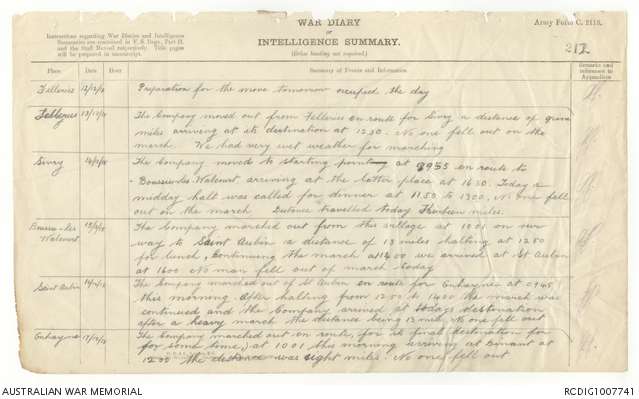 WAR DIARY
or
INTELLIGENCE SUMMARY.
(Erase heading not required.)
Army Form C. 2118.
Instructions regarding War Diaries and Intelligence
Summaries are contained in F. S. Regs., Part II.
and the Staff Manual respectively. Title pages
will be prepared in manuscript.
212
Place Date Hour Summary of Events and Information Remarks and references to Appendices
Felleries 12/12/18 Preparation for the move tomorrow occupied the day
Felleries 13/12/18 The Company moved out from Felleries en route for Sivry a distance of
miles arriving at its destination at 1230. No one fell out on the
march. We had very wet weather for marching
Sivry 14/12/18 The Company moved to starting point at 0955 en route to
Boussu-les Walcourt arriving at the latter place at 1630. Today a
midday halt was called for dinner at 1150 to 1300. No one fell
out on the march. Distance travelled today Thirteen miles.
Boussu-les Walcourt The Company marched out from this village at 1001 on our
way to Saint Aubin a distance of 13 miles halting at 1250
for lunch, continuing the march at 1400 we arrived at St Aubin
at 1600 No man fell out of march today
Saint Aubin The Company marched out of St Aubin en route for Onhaye at 0945
this morning. After halting from 1200 to 1400 the march was
continued and the Company arrived at todays destination
after a heavy march the distance being 13 miles. No one fell out
Onhaye The Company marched out en route for its final destination for
for some time, at 1001 this morning arriving at Dinant at
1200 the distance was eight miles. No one fell out
AUSTRALIAN WAR MEMORIAL
RCDIG1007741